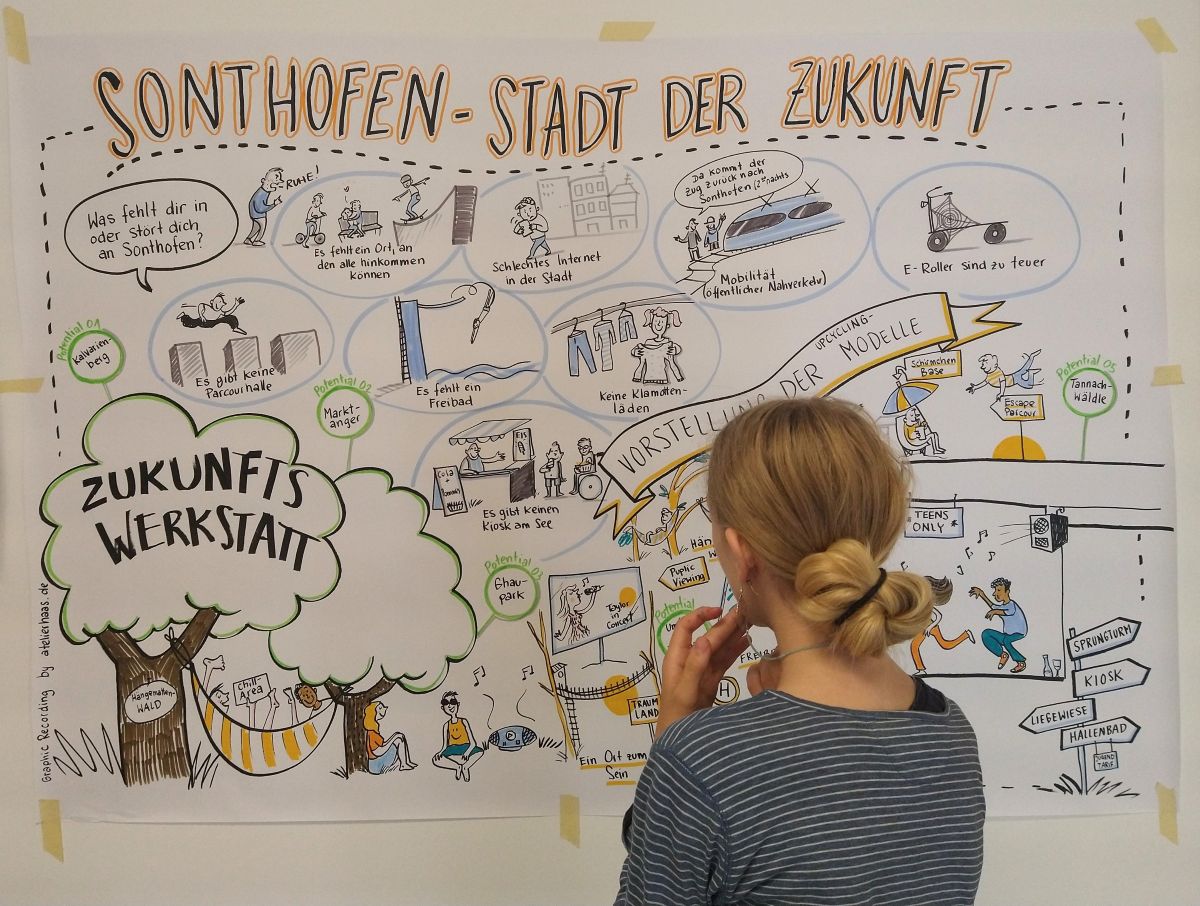 SONTHOFEN - STADT DER ZUKUNFT
Was fehlt dir in
oder stört dich
an Sonthofen?
RUHE!
Es fehlt ein Ort, an
den alle hinkommen
können
Schlechtes Internet
in der Stadt
Da kommt der
Zug zurück nach
Sonthofen
Mobilität
(öffentlicher Nahverkehr)
E-Roller sind zu teuer
Es gibt keine
Parcourhalle
Es fehlt ein
Freibad
Keine Klamotten-
läden
EIS
Cola
Es gibt keinen
Kiosk am See
Potential 01
Kalvarien-
berg
Potential 02
Markt-
anger
Potential 03
Ghau-
park
Potential
Potential 05
Tannach-
wäldle
ZUKUNFTS
WERKSTATT
Hängematten-
WALD
chill-
Area
VORSTELLUNG DER
UPCYCLING-
MODELLE
Schirmchen
Base
Escape
Parcour
Public
Viewing
Taylor
in
Concert
TRAUM
LAND
Ein Ort zum
Sein
H
TEENS
ONLY *
SPRUNGTURM
KIOSK
LIEGEWIESE
HALLENBAD
JUGEND
TARIF
Graphic Recording by atelierhaas.de